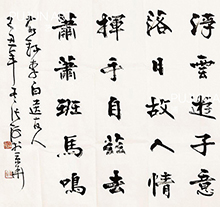 浮雲遊子意
落日故人情
揮手自兹去
蕭蕭班馬鳴
李白送友人